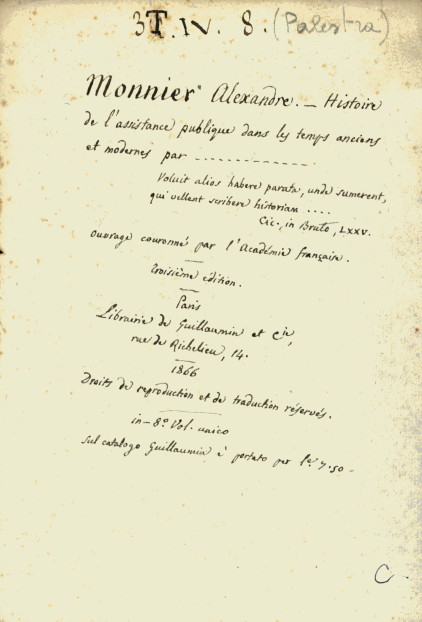 3T. IV. 8. (Palestra)
Monnier Alexandre. — Histoire
de l'assistance publique dans les temps anciens
et modernes par . . . . . . . . . . . . . .
Voluit alios habere parata, unde sumerent,
qui vellent scribere historiam ....
Cic., in Bruto, LXXV.
Ouvrage couronné par l'Académie française.
Troisième édition.
Paris
Librairie de Guillaumin et Cie,
rue de Richelieu, 14.
1866
Droits de reproduction et de traduction réservés.
in-8º Vol. unico
Sul catalogo Guillaumin è portato per lre 7.50 -
C.